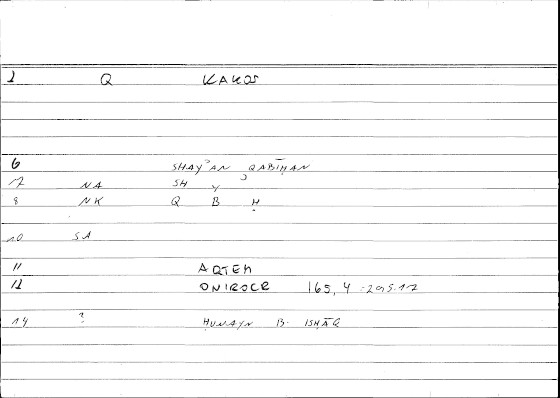 1 Q KAKOS
6 SHAYʾAN QABĪḤAN
17 NA SH Y ʾ
8 NK Q B Ḥ
10 SA
11 ARTEM
12 ONIROCR 165,4 = 295.17
14 ? ḤUNAYN B. ISḤĀQ